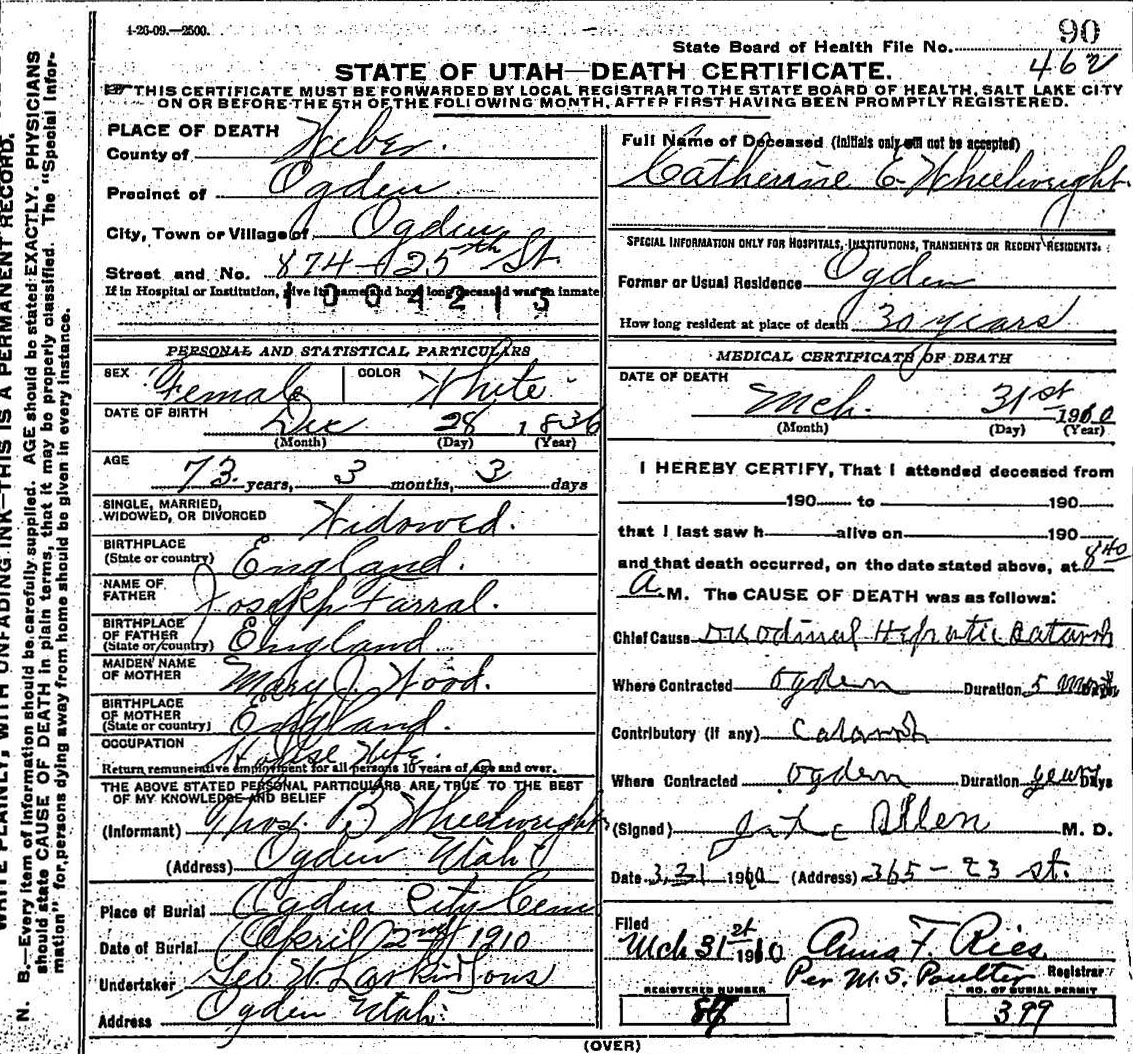 4-26-09.—2500.
90
State Board of Health File No.
462
STATE OF UTAH—DEATH CERTIFICATE.
THIS CERTIFICATE MUST BE FORWARDED BY LOCAL REGISTRAR TO THE STATE BOARD OF HEALTH, SALT LAKE CITY
ON OR BEFORE THE 5TH OF THE FOLLOWING MONTH, AFTER FIRST HAVING BEEN PROMPTLY REGISTERED.
PLACE OF DEATH
County of Weber.
Precinct of Ogden
City, Town or Village of Ogden
Street and No. 874-25th St.
If in Hospital or Institution, give its name and how long deceased was an inmate
1004213
PERSONAL AND STATISTICAL PARTICULARS
SEX Female COLOR White
DATE OF BIRTH
Dec 28 1836
(Month) (Day) (Year)
AGE
73 years, 3 months, 3 days
SINGLE, MARRIED,
WIDOWED, OR DIVORCED Widowed.
BIRTHPLACE
(State or country) England.
NAME OF
FATHER Joseph Farral.
BIRTHPLACE
OF FATHER
(State or country) England
MAIDEN NAME
OF MOTHER Mary J. Wood.
BIRTHPLACE
OF MOTHER
(State or country) England.
OCCUPATION House Wife.
Return remunerative employment for all persons 10 years of age and over.
THE ABOVE STATED PERSONAL PARTICULARS ARE TRUE TO THE BEST
OF MY KNOWLEDGE AND BELIEF
(Informant) Thos. B Wheelwright
(Address) Ogden Utah
Place of Burial Ogden City Cem
Date of Burial April 2nd 1910
Undertaker Geo. W. Larkin Sons
Address Ogden Utah.
Full Name of Deceased (Initials only will not be accepted)
Catherine E. Wheelwright.
SPECIAL INFORMATION ONLY FOR HOSPITALS, INSTITUTIONS, TRANSIENTS OR RECENT RESIDENTS.
Former or Usual Residence Ogden
How long resident at place of death 30 years
MEDICAL CERTIFICATE OF DEATH
DATE OF DEATH
Mch. 31st 1910
(Month) (Day) (Year)
I HEREBY CERTIFY, That I attended deceased from
190 to 190
that I last saw h alive on 190
and that death occurred, on the date stated above, at 8 40
A. M. The CAUSE OF DEATH was as follows:
Chief Cause Duodinal Hepatic Catarrh
Where Contracted Ogden Duration 5
Contributory (if any) Catarrh
Where Contracted Ogden Duration years Days
(Signed) Allen M. D.
Date 3/31 1910 (Address) 365-23 st.
Filed
Mch 31st 1910 Anna F. Ries.
Per M. S. Poulter Registrar
REGISTERED NUMBER NO. OF BURIAL PERMIT
399
(OVER)
WRITE PLAINLY, WITH UNFADING INK—THIS IS A PERMANENT RECORD.
N. B.—Every item of information should be carefully supplied. AGE should be stated EXACTLY. PHYSICIANS
should state CAUSE OF DEATH in plain terms, that it may be properly classified. The "Special Infor-
mation" for persons dying away from home should be given in every instance.